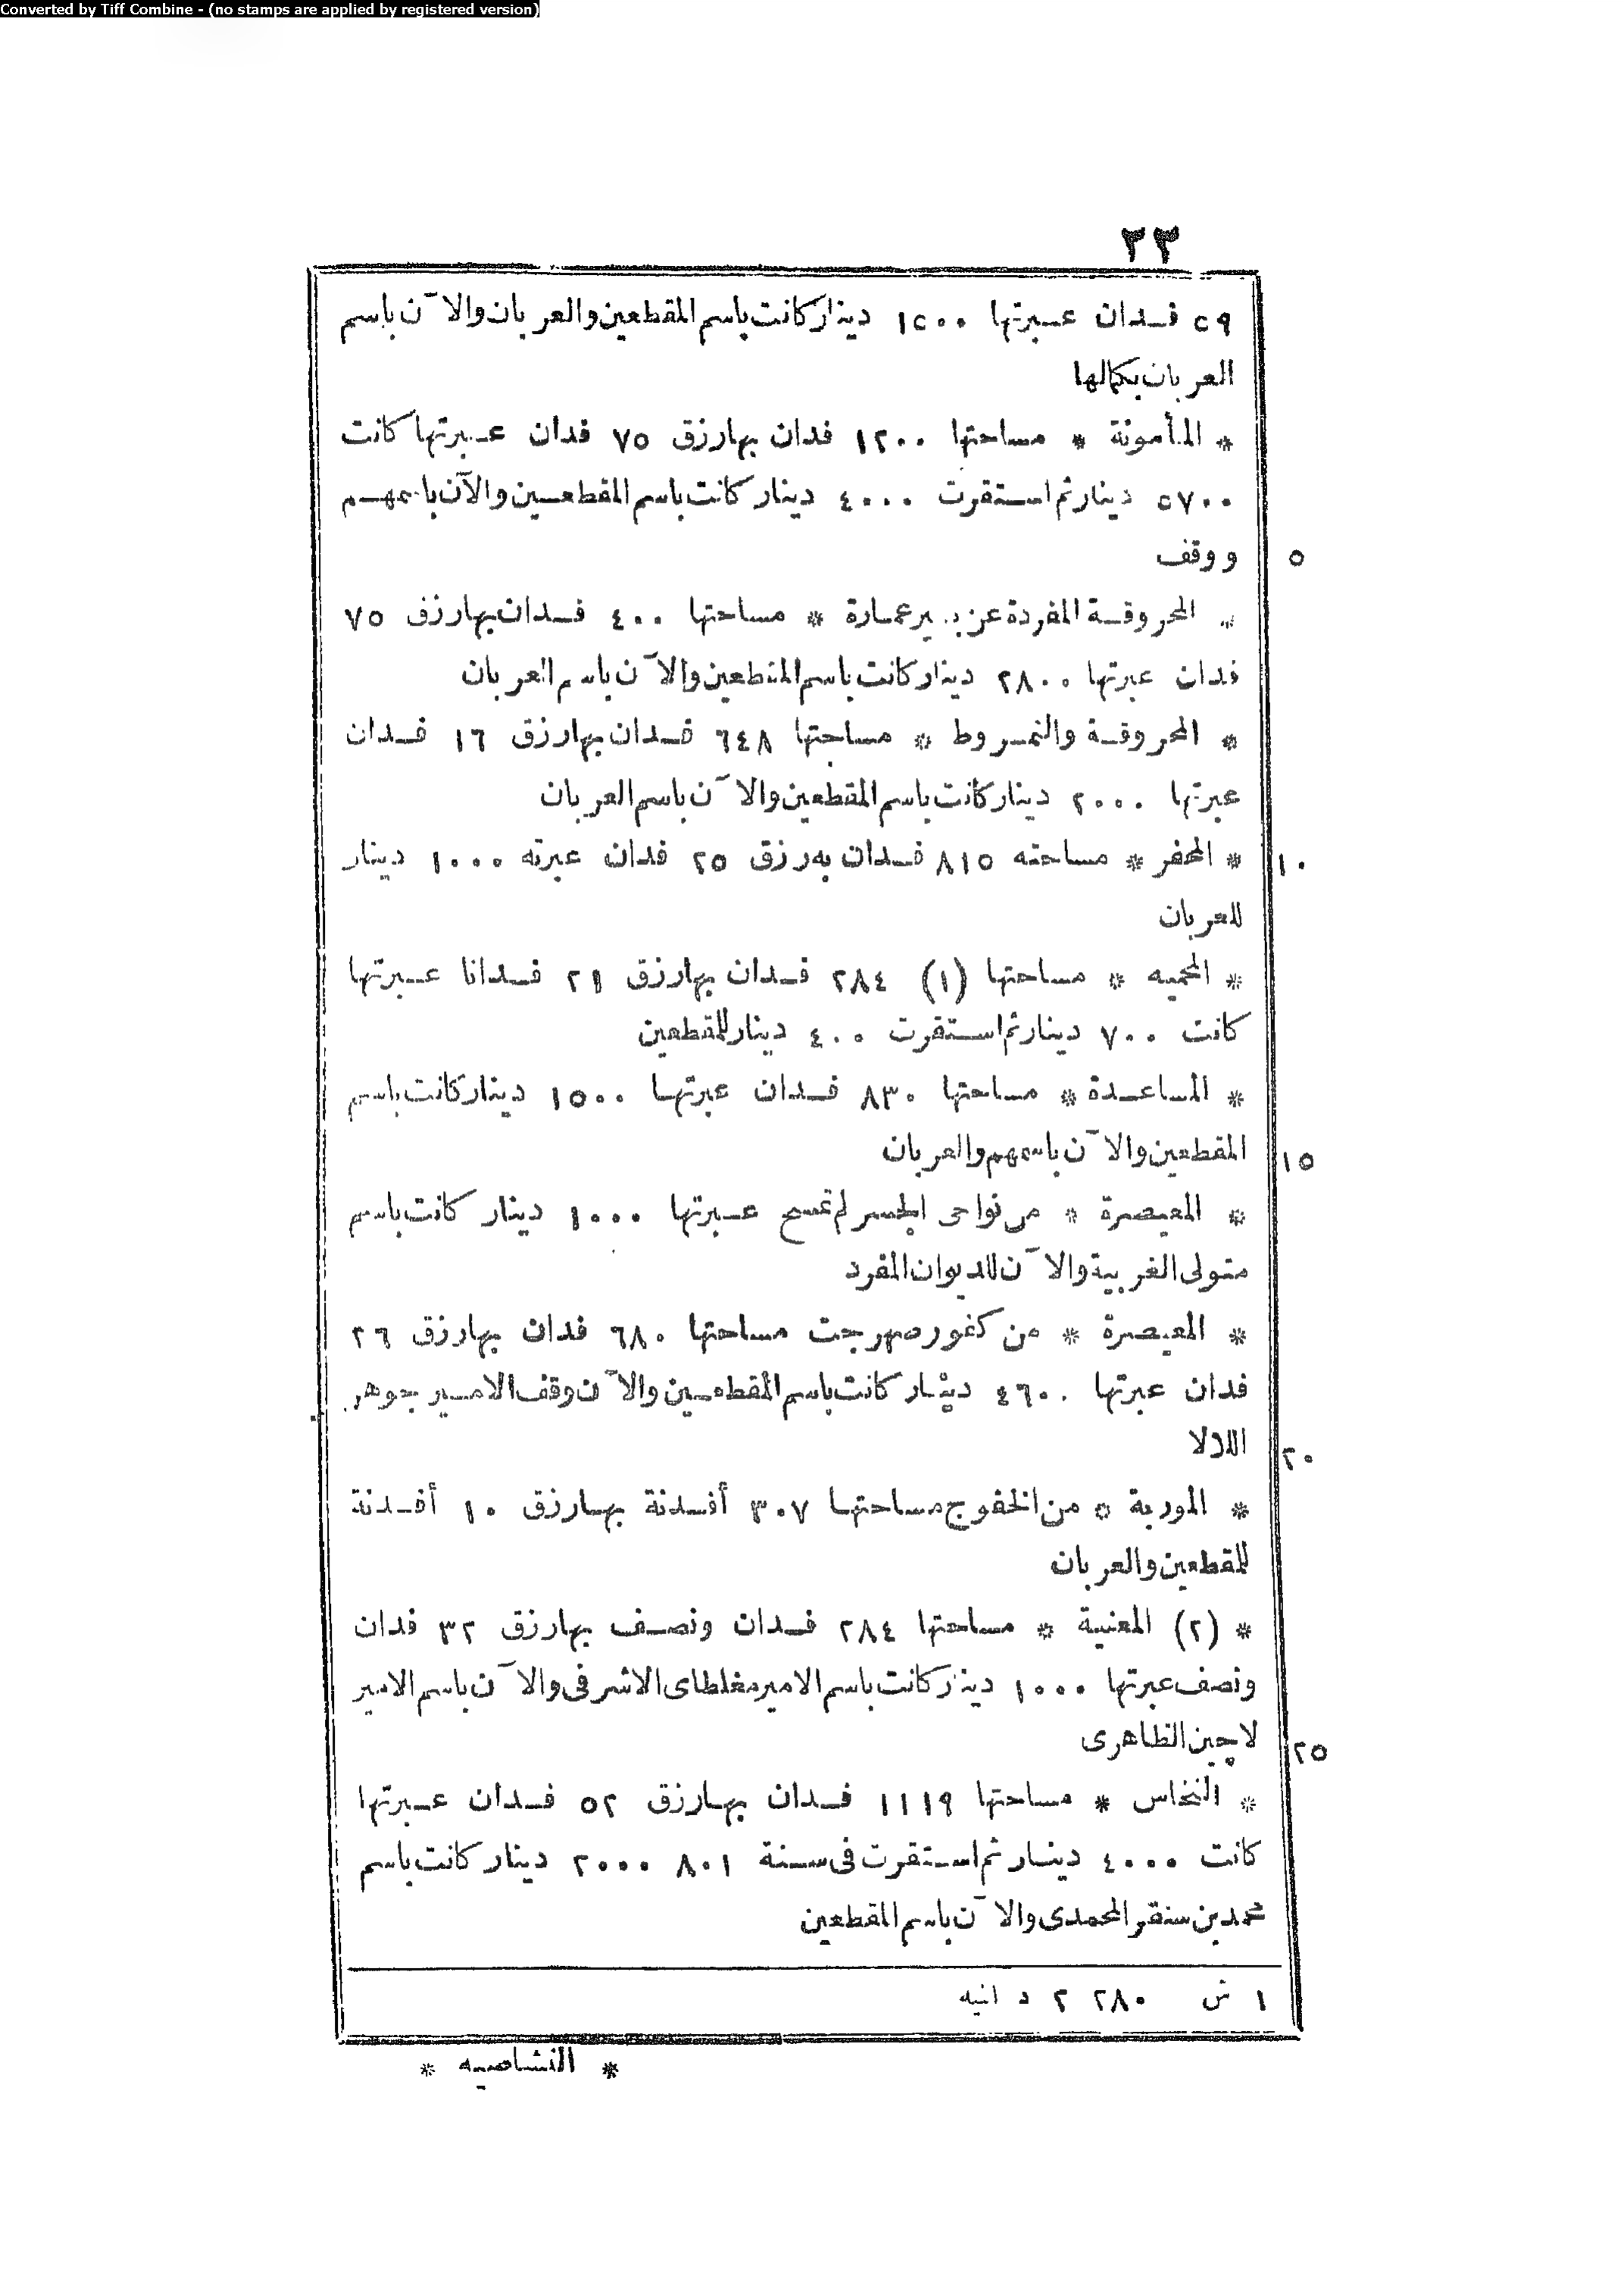 Converted by Tiff Combine - (no stamps are applied by registered version)
٢٣
٢٩ فـدان عـبرتها ١٢٠٠ دينار كانت باسم المقطعين والعربان والآن باسم
العربان بكمالها
* المأمونة * مساحتها ١٢٠٠ فدان بها رزق ٧٥ فدان عـبرتها كانت
٥٧٠٠ دينار ثم استقرت ٤٠٠٠ دينار كانت باسم المقطعـين والآن باسمهـم
ووقف
٥
* المحروقـة المفردة عن عمـارة * مساحتها ٤٠٠ فـدان بها رزق ٧٥
فدان عبرتها ٢٨٠٠ دينار كانت باسم المقطعين والآن باسم العربان
* المحروقـة والنمـروط * مساحتها ٦٤٨ فـدان بها رزق ١٦ فـدان
عبرتها ٢٠٠٠ دينار كانت باسم المقطعين والآن باسم العربان
* المحفر * مساحته ٨١٥ فـدان به رزق ٢٥ فدان عبرته ١٠٠٠ دينار
١٠
للعربان
* المحميه * مساحتها (١) ٢٨٤ فـدان بها رزق ٢١ فـدانا عـبرتها
كانت ٧٠٠ دينار ثم استقرت ٤٠٠ دينار للمقطعين
* المساعـدة * مساحتها ٨٣٠ فـدان عبرتهـا ١٥٠٠ دينار كانت باسم
المقطعين والآن باسمهم والعربان
١٥
* المعيصرة * من نواحى الجسر لم تمسح عـبرتها ١٠٠٠ دينار كانت باسم
متولى الغربية والآن للديوان المفرد
* المعيصرة * من كفور صهرجت مساحتها ٦٨٠ فدان بها رزق ٢٦
فدان عبرتها ٤٦٠٠ دينـار كانت باسم المقطعـين والآن وقف الامـير جوهر
اللالا
٢٠
* المورية * من الخفوج مساحتهـا ٣٠٧ أفـدنة بهـا رزق ١٠ أفـدنة
للمقطعين والعربان
* (٢) المعنية * مساحتها ٢٨٤ فـدان ونصـف بها رزق ٣٢ فدان
ونصف عبرتها ١٠٠٠ دينار كانت باسم الامير مغلطاى الاشرفى والآن باسم الامير
لاچين الظاهرى
٢٥
* النخاس * مساحتها ١١١٩ فـدان بهـا رزق ٥٢ فـدان عـبرتها
كانت ٤٠٠٠ دينـار ثم اسـتقرت فى سـنة ٨٠١ ٢٠٠٠ دينار كانت باسم
محمد بن سنقر المحمدى والآن باسم المقطعين
١ ش ٢٨٠ ٢ د انيه
* النشاصيه *